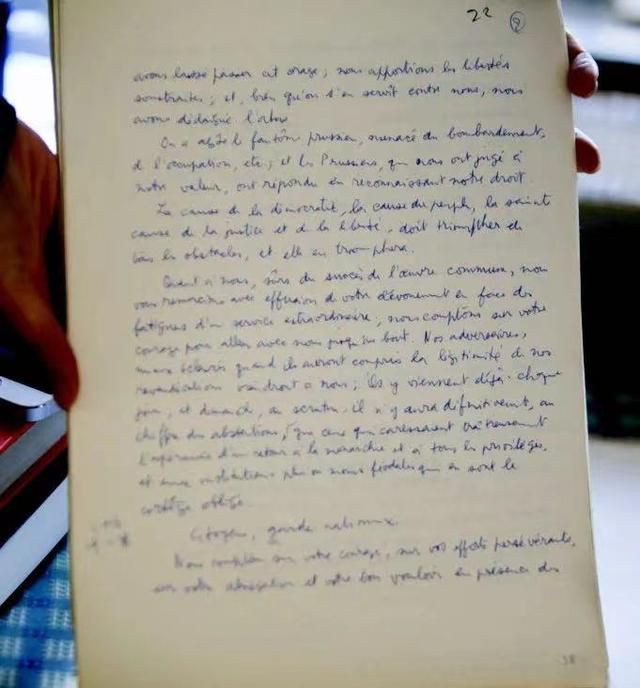 22
avons laissé passer cet orage; nous apportions les libertés
soustraites; et, bien qu'on s'en servît contre nous, nous
avons dédaigné
On a agité le fantôme prussien, menacé du bombardement,
de l'occupation, etc; et les Prussiens, qui nous ont jugé à
notre valeur, ont répondu en reconnaissant notre droit.
La cause de la démocratie, la cause du peuple, la sainte
cause de la justice et de la liberté, doit triompher de
tous les obstacles, et elle en triomphera.
Quant à nous, sûrs du succès de l'œuvre commune, nous
vous remercions avec effusion de votre dévouement en face des
fatigues d'un service extraordinaire; nous comptons sur votre
courage pour aller avec nous jusqu'au bout. Nos adversaires,
mieux éclairés quand ils auront compris la légitimité de nos
revendications viendront à nous; ils y viennent déjà chaque
jour, et dimanche, au scrutin, il n'y aura définitivement, au
chiffre des abstentions, que ceux qui caressent traîtreusement
l'espérance d'un retour à la monarchie et à tous les privilèges,
et aux institutions plus ou moins féodales qui en sont le
cortège obligé.
Citoyens, gardes nationaux
Nous comptons sur votre courage, sur vos efforts persévérants,
sur votre abnégation et votre bon vouloir en présence des
38